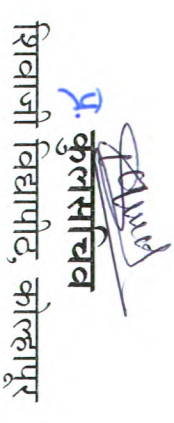 प्र. कुलसचिव
शिवाजी विद्यापीठ, कोल्हापूर